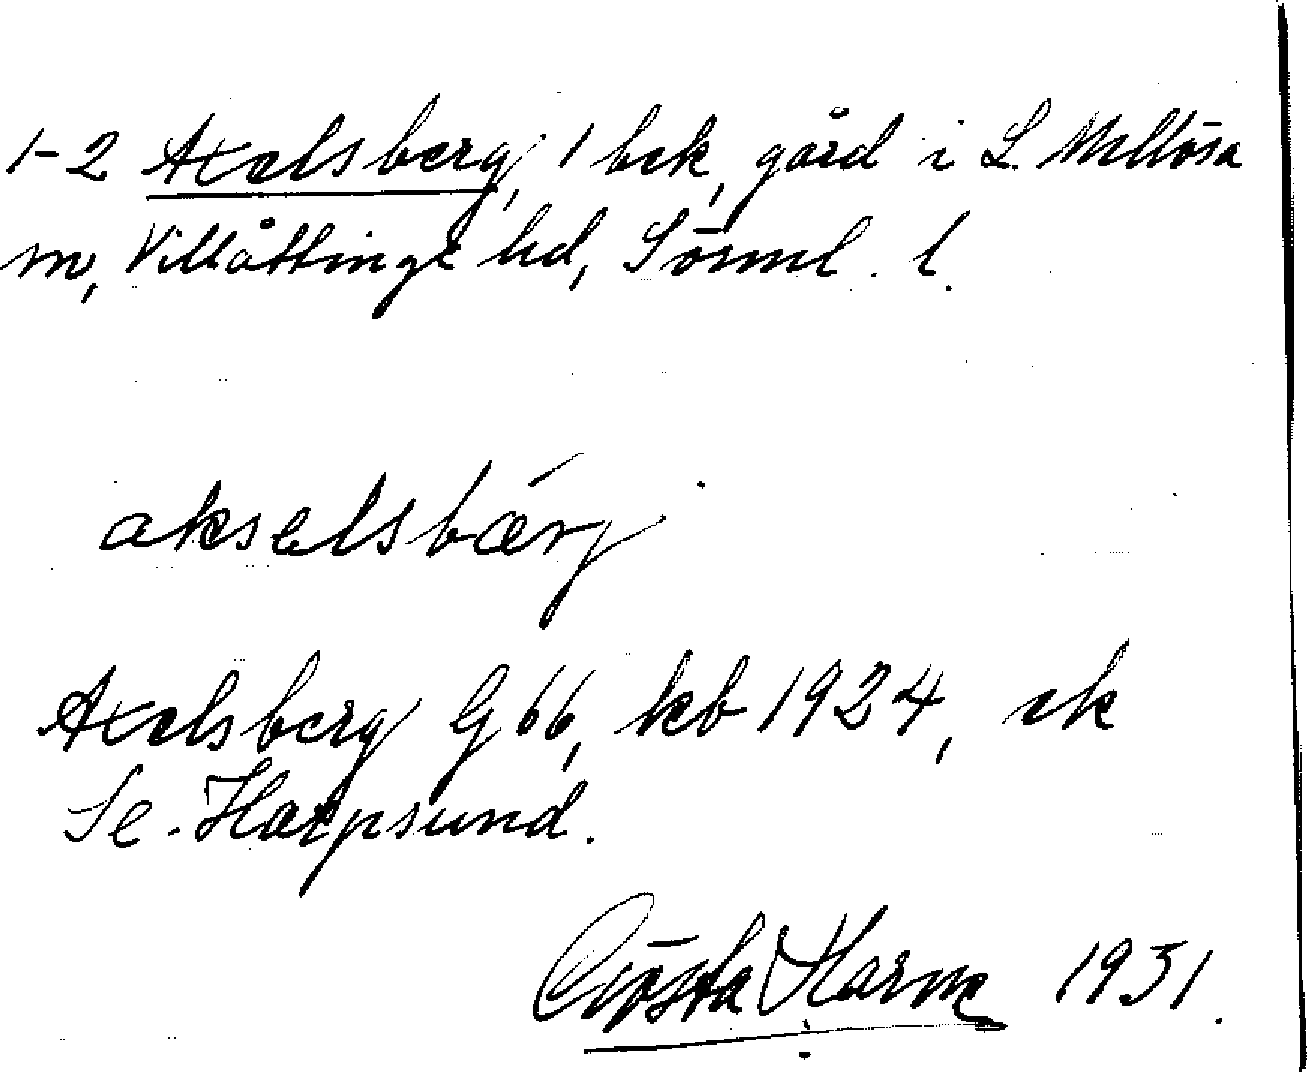 1-2 Axelsberg, 1 bek, gård i L. Mellösa
sn, Villåttinge hd, Sörml. l.
akselsbǽrj
Axelsberg G 66, kb 1924, ek
Se. Harpsund.
Gösta Harne 1931.